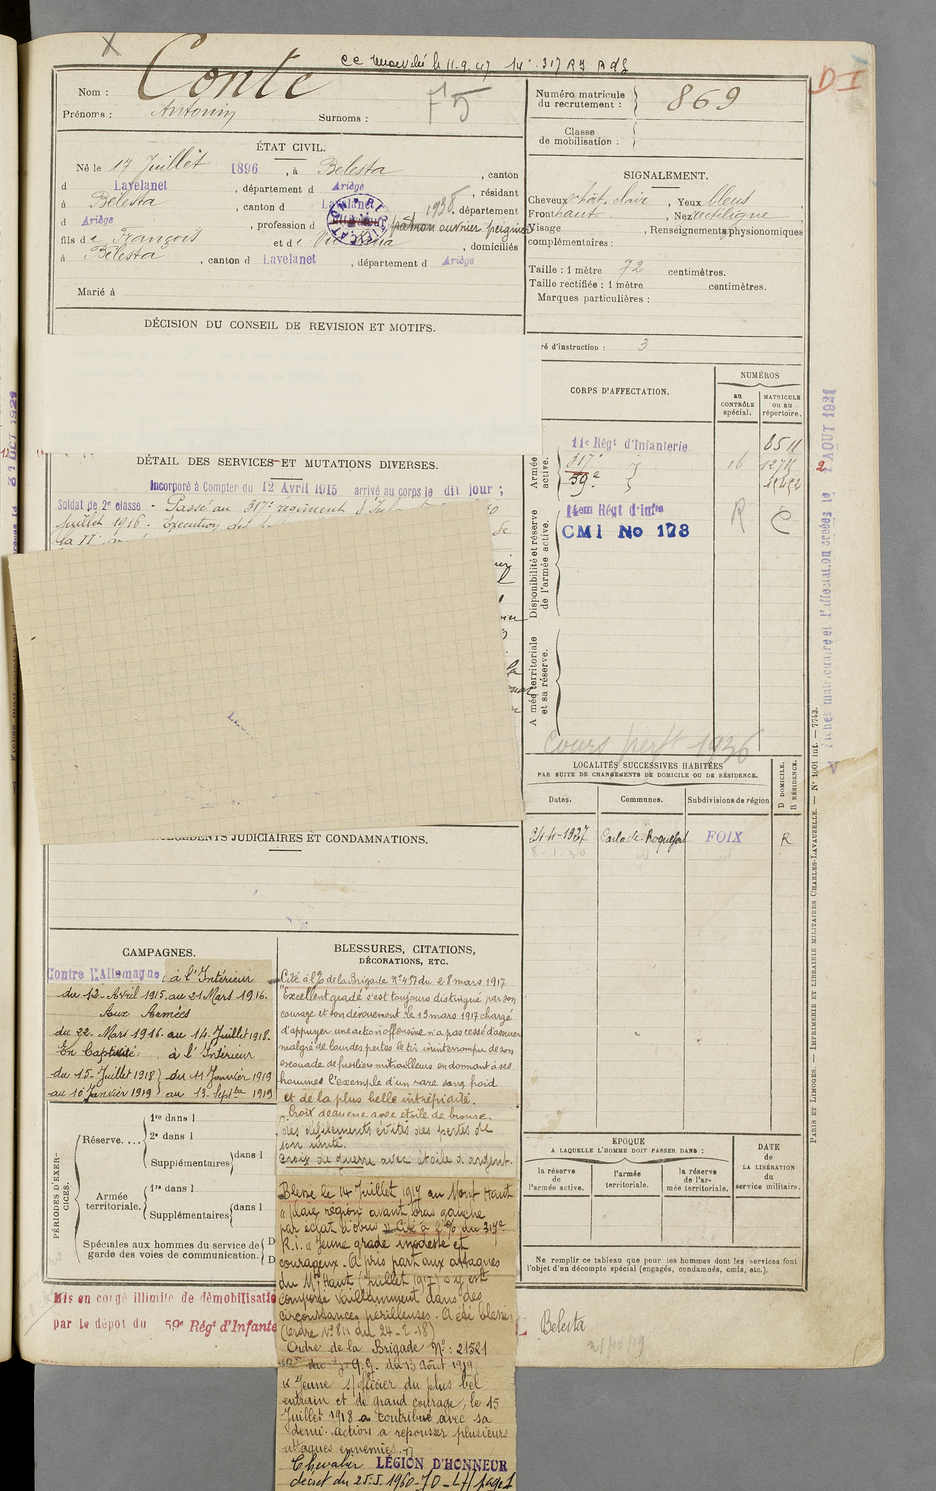 Conte
Nom :
Prénoms : Antonin Surnoms :
F 15
D I
Numéro matricule du recrutement : 869
Classe de mobilisation :
ÉTAT CIVIL.
Né le 17 Juillet 1896, à Belesta, canton
d Lavelanet, département d Ariège, résidant
à Belesta, canton d Lavelanet 1938, département
d Ariège, profession d patron ouvrier peigneur
fils de François et de, domiciliés
à Belesta, canton d Lavelanet, département d Ariège
Marié à
SIGNALEMENT.
Cheveux chât. clair, Yeux bleus
Front haut, Nez rectiligne
Visage, Renseignements physionomiques
complémentaires :
Taille : 1 mètre 72 centimètres.
Taille rectifiée : 1 mètre centimètres.
Marques particulières :
DÉCISION DU CONSEIL DE REVISION ET MOTIFS.
ré d'instruction : 3
CORPS D'AFFECTATION.
NUMÉROS
au CONTRÔLE spécial.
MATRICULE ou au répertoire.
Armée active.
11e Régt d'Infanterie
317e 16
59e
Disponibilité et réserve de l'armée active.
14em Régt d'Infie R
CMI No 178
A mée territoriale et sa réserve.
cours perft 1936
DÉTAIL DES SERVICES ET MUTATIONS DIVERSES.
Incorporé à Compter du 12 Avril 1915 arrivé au corps le dit jour ;
Soldat de 2e classe - Passé au 317e régiment d'Inf
juillet 1916. Exécution des
LOCALITÉS SUCCESSIVES HABITÉES
PAR SUITE DE CHANGEMENTS DE DOMICILE OU DE RÉSIDENCE.
Dates. Communes. Subdivisions de région D DOMICILE. R RÉSIDENCE.
24-4-1937 Carla de Roquefort FOIX R
CÉDENTS JUDICIAIRES ET CONDAMNATIONS.
CAMPAGNES.
Contre l'Allemagne, à l'Intérieur
du 12-Avril 1915 au 21 Mars 1916.
Aux Armées
du 22 Mars 1916 au 14 Juillet 1918.
En Captivité : à l'Intérieur
du 15-Juillet 1918 du 11 Janvier 1919
au 10 Janvier 1919 au 13-Septbre 1919
BLESSURES, CITATIONS,
DÉCORATIONS, ETC.
Cité à l'O de la Brigade N° 457 du 28 mars 1917
"Excellent gradé s'est toujours distingué par son
courage et son dévouement. Le 13 mars 1917 chargé
d'appuyer une action offensive n'a pas cessé d'assurer
malgré de lourdes pertes le tir ininterrompu de son
escouade de fusiliers mitrailleurs en donnant à ses
hommes l'exemple d'un rare sang froid
et de la plus belle intrépidité.
Croix de guerre avec étoile de bronze.
des détachements évités des pertes de
son unité.
Croix de guerre avec étoile d'argent.
Blessé le 14 Juillet 1917 au Mont Haut
"plaie région avant bras gauche
par éclat d'obus" Cité à l'O/ du 317e
R.i. "Jeune gradé modeste et
courageux. A pris part aux attaques
du Mt Haut (Juillet 1917) s'y est
comporté vaillamment dans des
circonstances périlleuses. A été blessé
(Ordre N° 811 du 24-2-18)
Ordre de la Brigade N° : 21521
du G.Q.G. du 13 Août 1919
"Jeune s/officier du plus bel
entrain et de grand courage, le 15
Juillet 1918 a contribué avec sa
demi-section a repousser plusieurs
attaques ennemies."
Chevalier LÉGION D'HONNEUR
décret du 25.5.1960 - JO - page 1
PÉRIODES D'EXERCICES.
Réserve. ... 1re dans l
2e dans l
Supplémentaires dans l
Armée territoriale. 1re dans l
Supplémentaires dans l
Spéciales aux hommes du service de garde des voies de communication. D
D
Mis en congé illimité de démobilisatio
par le dépot du 59e Régt d'Infante
Belesta
EPOQUE
A LAQUELLE L'HOMME DOIT PASSER DANS :
DATE de LA LIBÉRATION du service militaire.
la réserve de l'armée active. l'armée territoriale. la réserve de l'armée territoriale.
Ne remplir ce tableau que pour les hommes dont les services font
l'objet d'un décompte spécial (engagés, condamnés, omis, etc.).
PARIS ET LIMOGES. — IMPRIMERIE ET LIBRAIRIE MILITAIRES CHARLES-LAVAUZELLE. — N° 1001 int. — 7743.
Fiches matriculaire et l'affectation créées le 2 AOUT 1921
31 OCT 1921